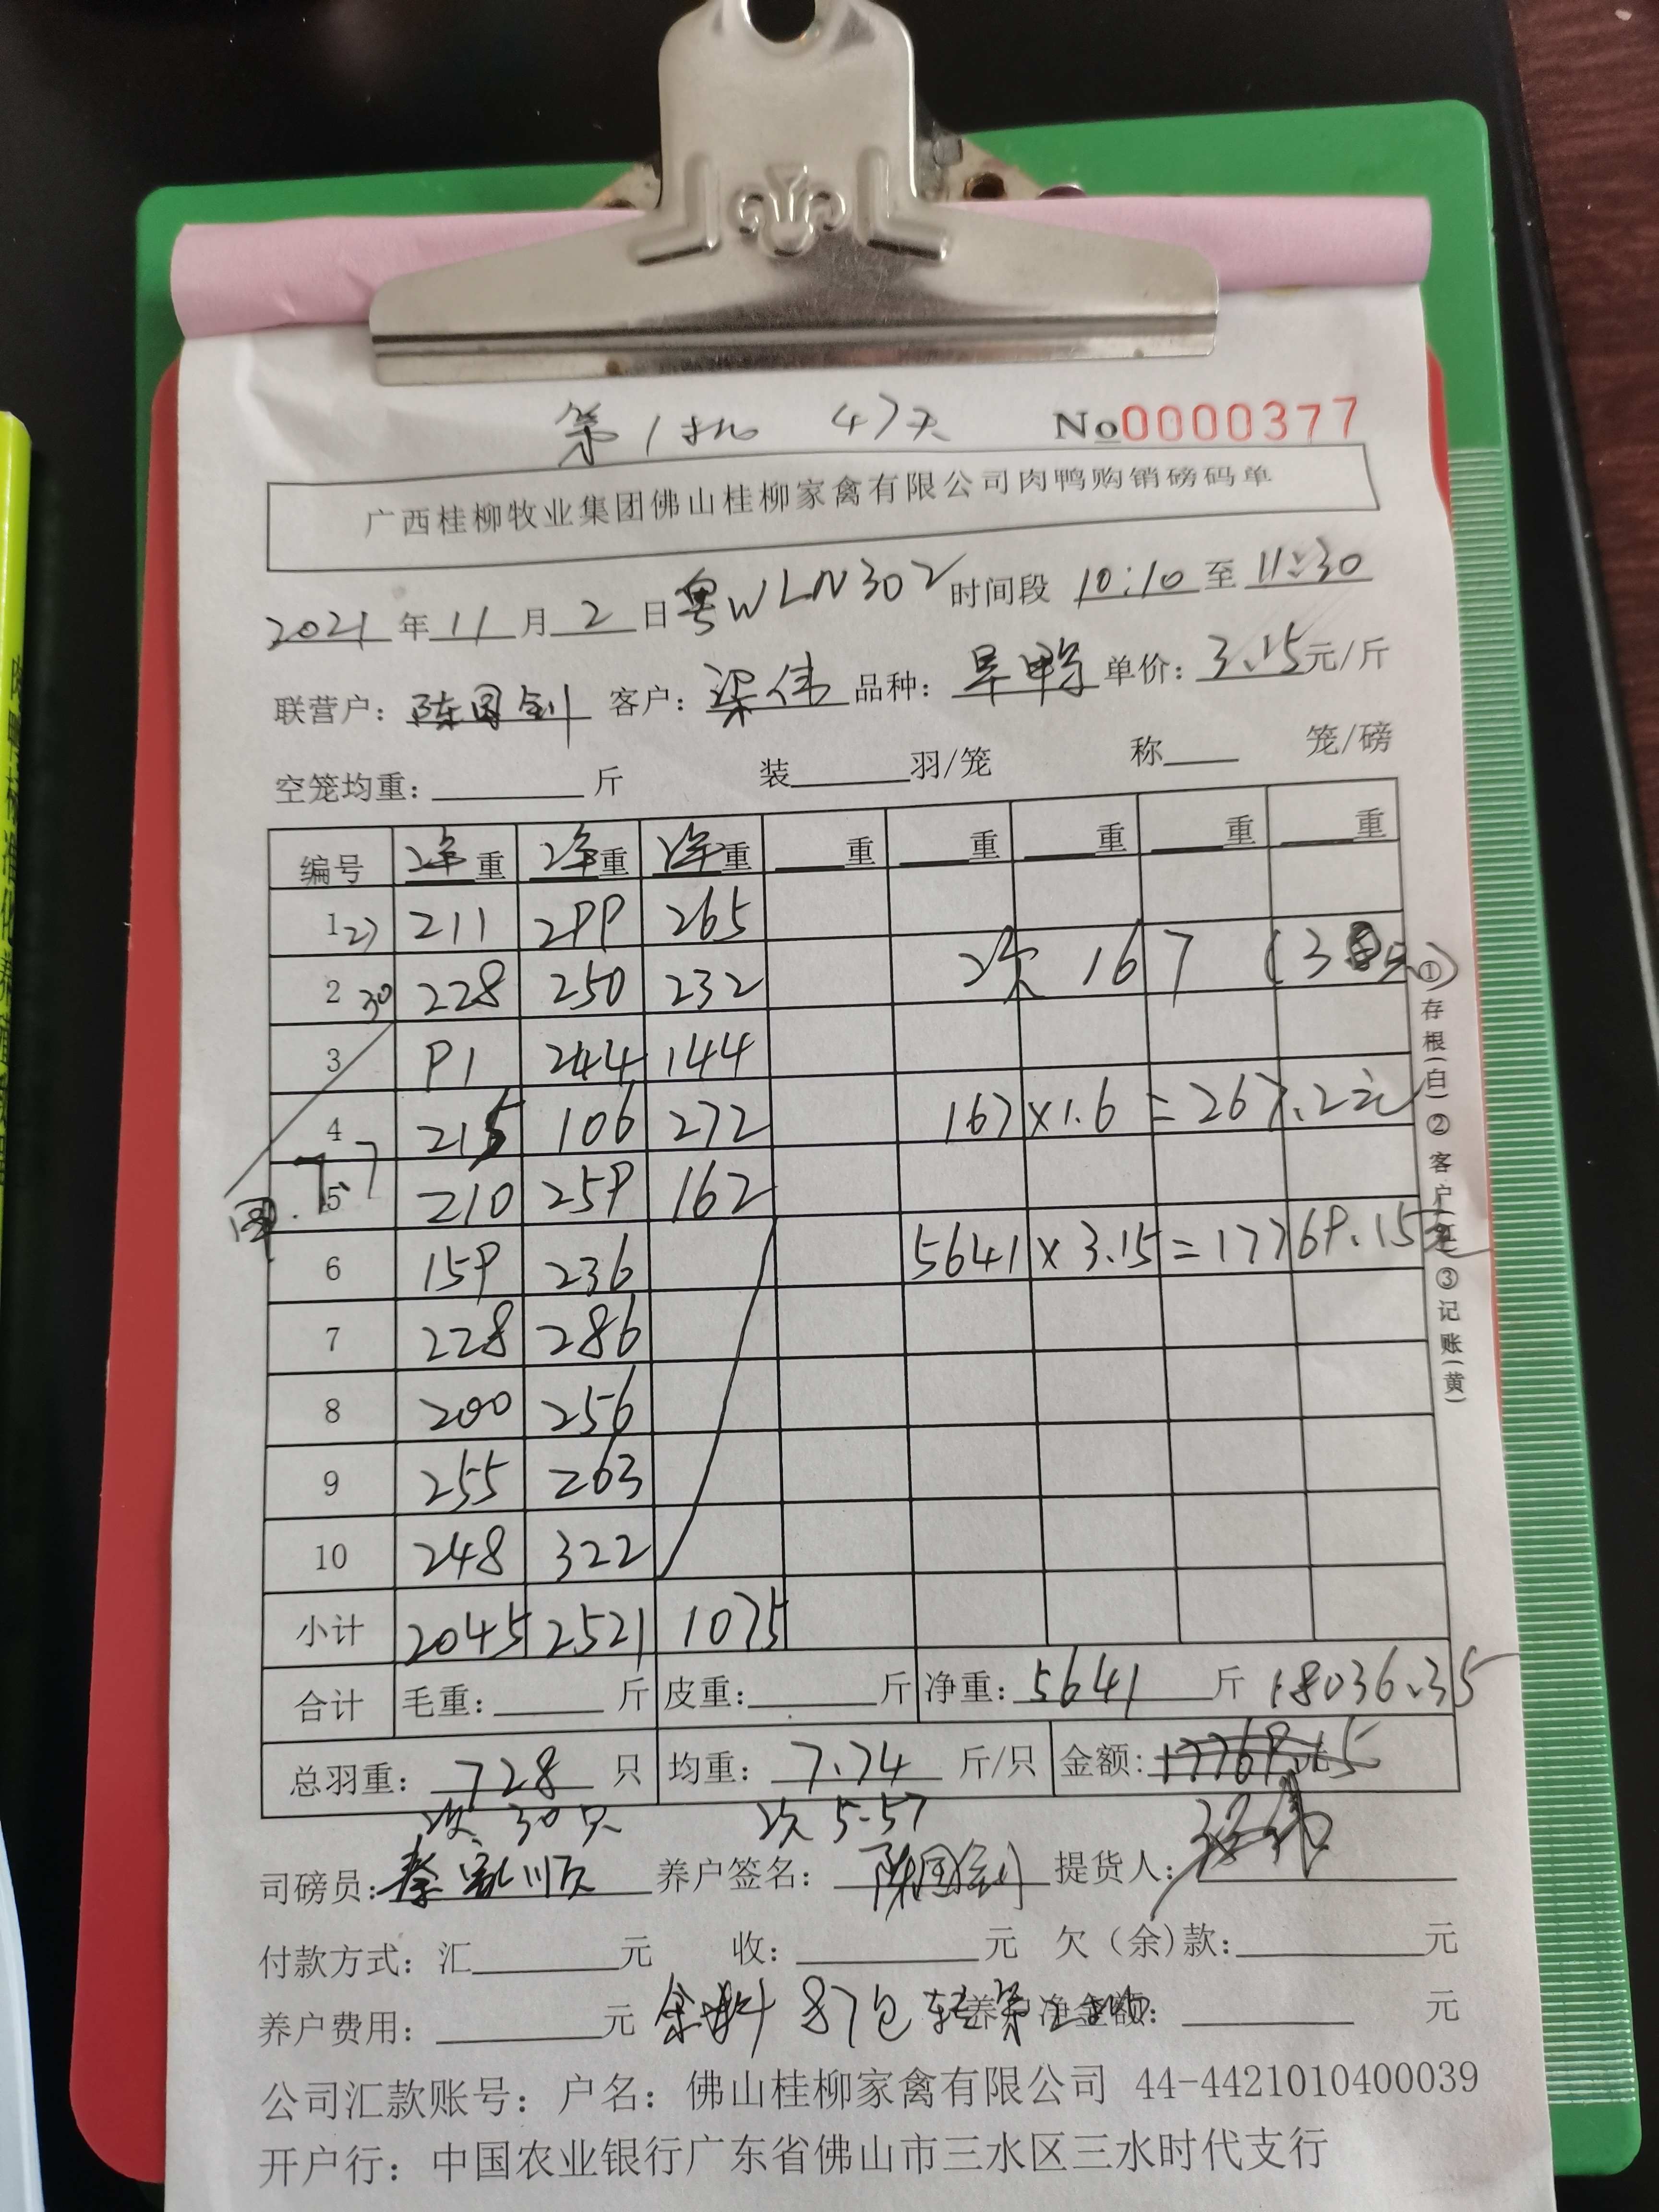 第1批 47天 No0000377
广西桂柳牧业集团佛山桂柳家禽有限公司肉鸭购销磅码单
2021年11月2日 粤WLN302 时间段 10:10 至 11:30
联营户: 陈国钊 客户: 梁伟 品种: 旱鸭 单价: 3.15元/斤
空笼均重: 斤 装 羽/笼 称 笼/磅
编号 净重 净重 净重 重 重 重 重 重
1 27 211 299 265
2 30 228 250 232 次 167 (30只)
3 91 244 144
4 215 106 272 167×1.6=267.2元
7.7
5 210 259 162
6 159 236 5641×3.15=17769.15元
7 228 286
8 200 256
9 255 263
10 248 322
小计 2045 2521 1075
合计 毛重: 斤 皮重: 斤 净重: 5641 斤 18036.35
总羽重: 728 只 均重: 7.74 斤/只 金额: 17769.15
次 30只 次 5.57
司磅员: 养户签名: 陈国钊 提货人:
付款方式: 汇 元 收: 元 欠(余)款: 元
养户费用: 元 余料 87包 养户净金额: 元
公司汇款账号: 户名: 佛山桂柳家禽有限公司 44-4421010400039
开户行: 中国农业银行广东省佛山市三水区三水时代支行
①存根(白)②客户(红)③记账(黄)